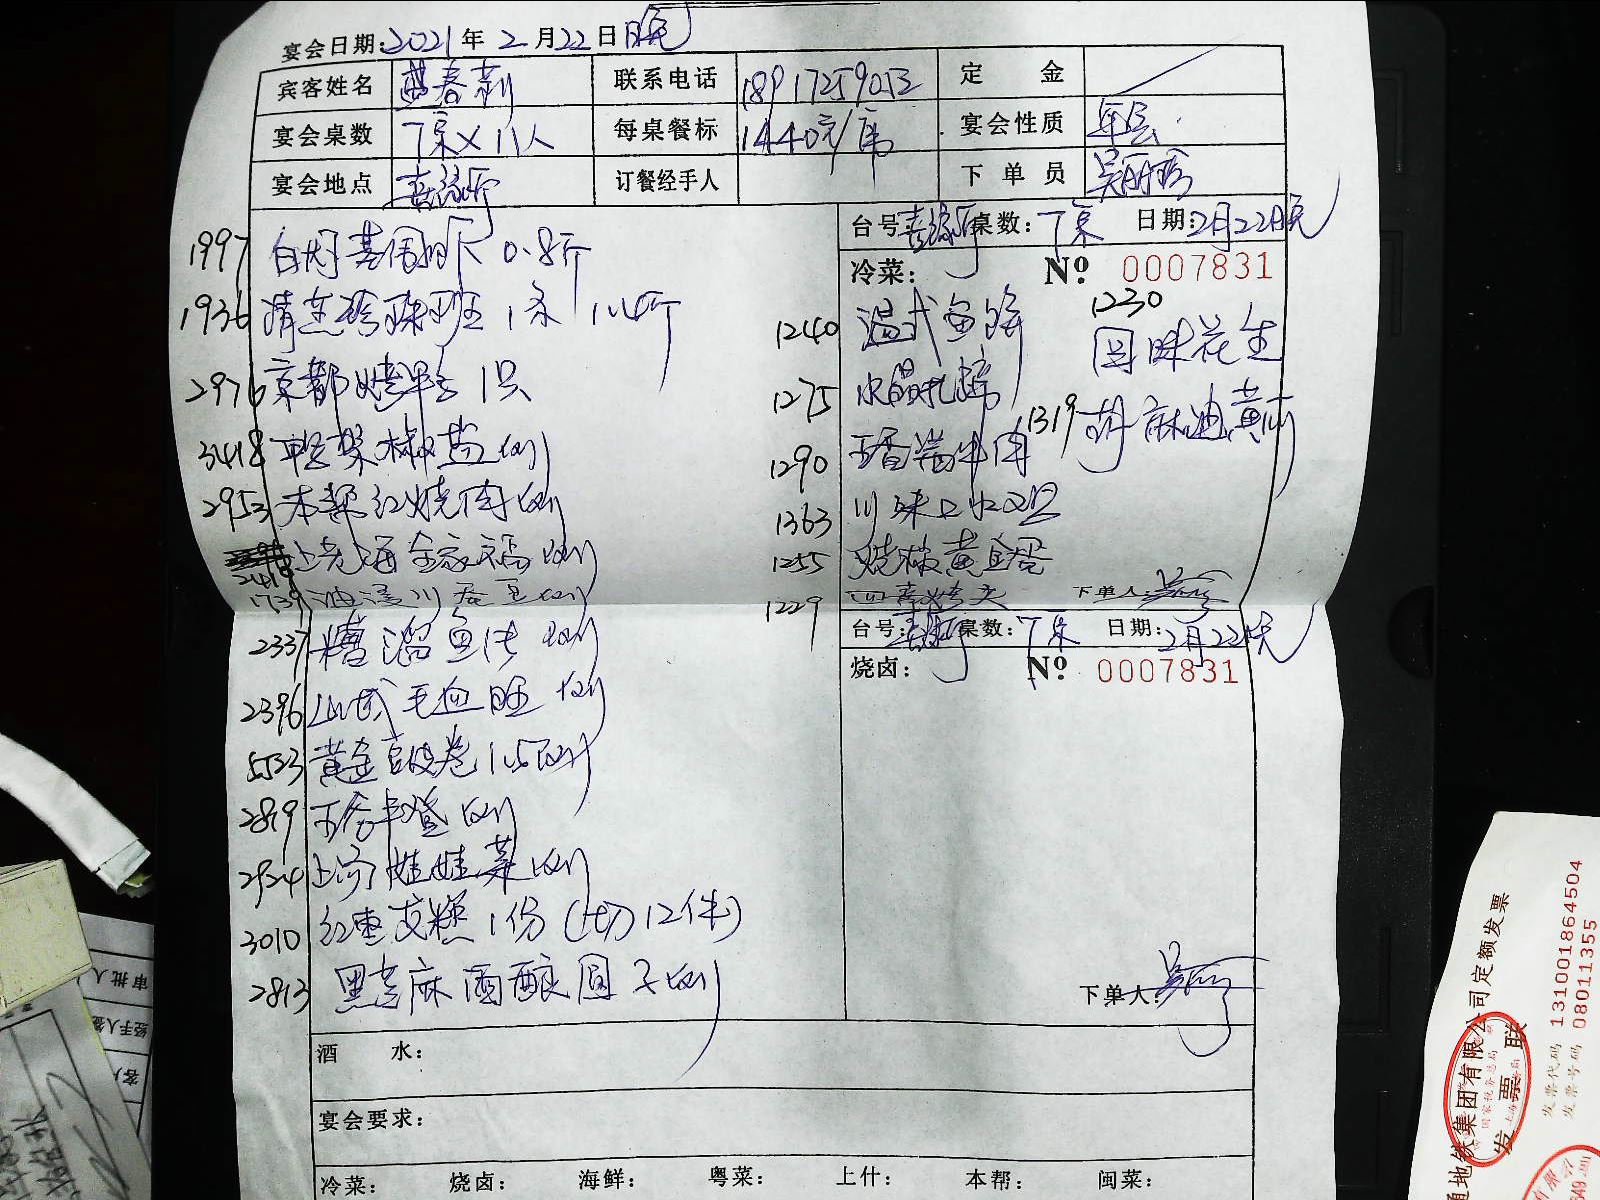 宴会日期:2021年2月22日晚
宾客姓名 春莉 联系电话 18917259052 定金
宴会桌数 7桌×11人 每桌餐标 1440元/席 宴会性质 年会
宴会地点 订餐经手人 下单员 吴
台号: 桌数:7桌 日期:2月22日晚
冷菜: № 0007831
1997 白灼基围虾 0.8斤
1936 清蒸珍珠斑 1条 1.4斤
2976 京都烤鸭 1只
3418 鸭架椒盐
2953 本帮红烧肉
2418 老上海全家福
1739
2337 糟溜鱼片
2396 山城毛血旺
5533 黄金豆皮卷 1.5
2899
2934 上汤娃娃菜
3010 红枣发糕1份(切12件)
2813 黑芝麻酒酿圆子
1240 温式鱼饼
1230 回味花生
1275 水晶扎蹄
1319 胡麻油黄瓜
1290 五香酱牛肉
1363 川味口水鸡
1255 烧椒黄皮蛋
1229 四喜烤夫
下单人:
台号: 桌数:7桌 日期:2月22日晚
烧卤: № 0007831
下单人:
酒水:
宴会要求:
冷菜: 烧卤: 海鲜: 粤菜: 上什: 本帮: 闽菜:
审批人
经手人签
地铁集团有限公司定额发票
发票联
发票代码 131001864504
发票号码 08011355